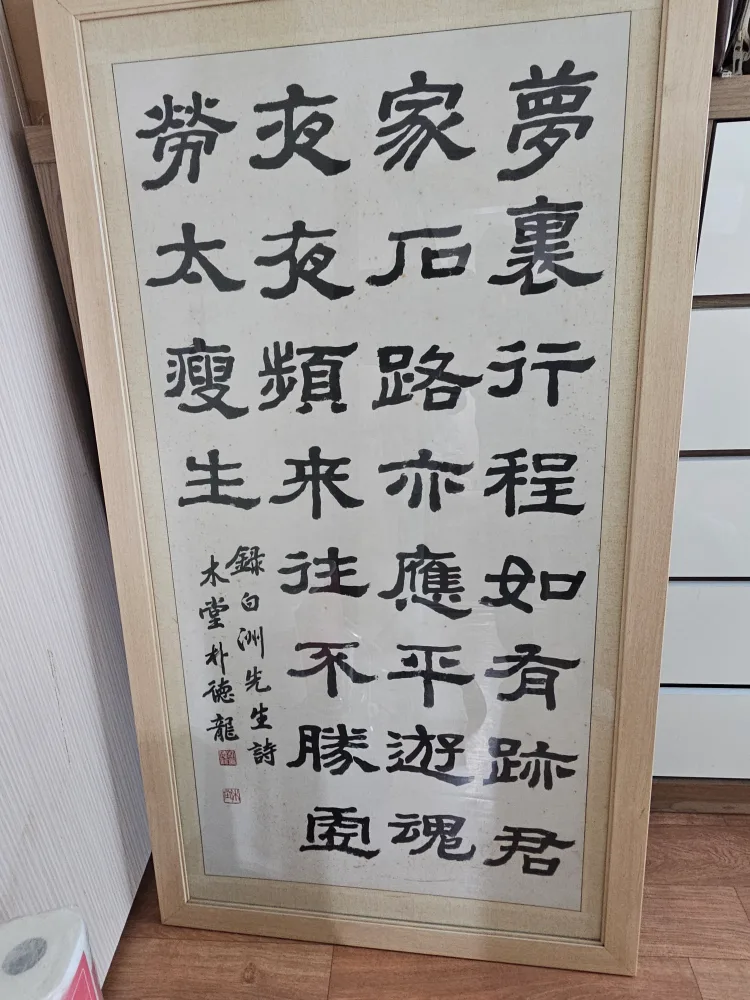 夢裏行程如有跡君
家石路亦應平遊魂
夜夜頻来往不勝虛
勞太瘦生
録白洲先生詩
木堂朴德龍